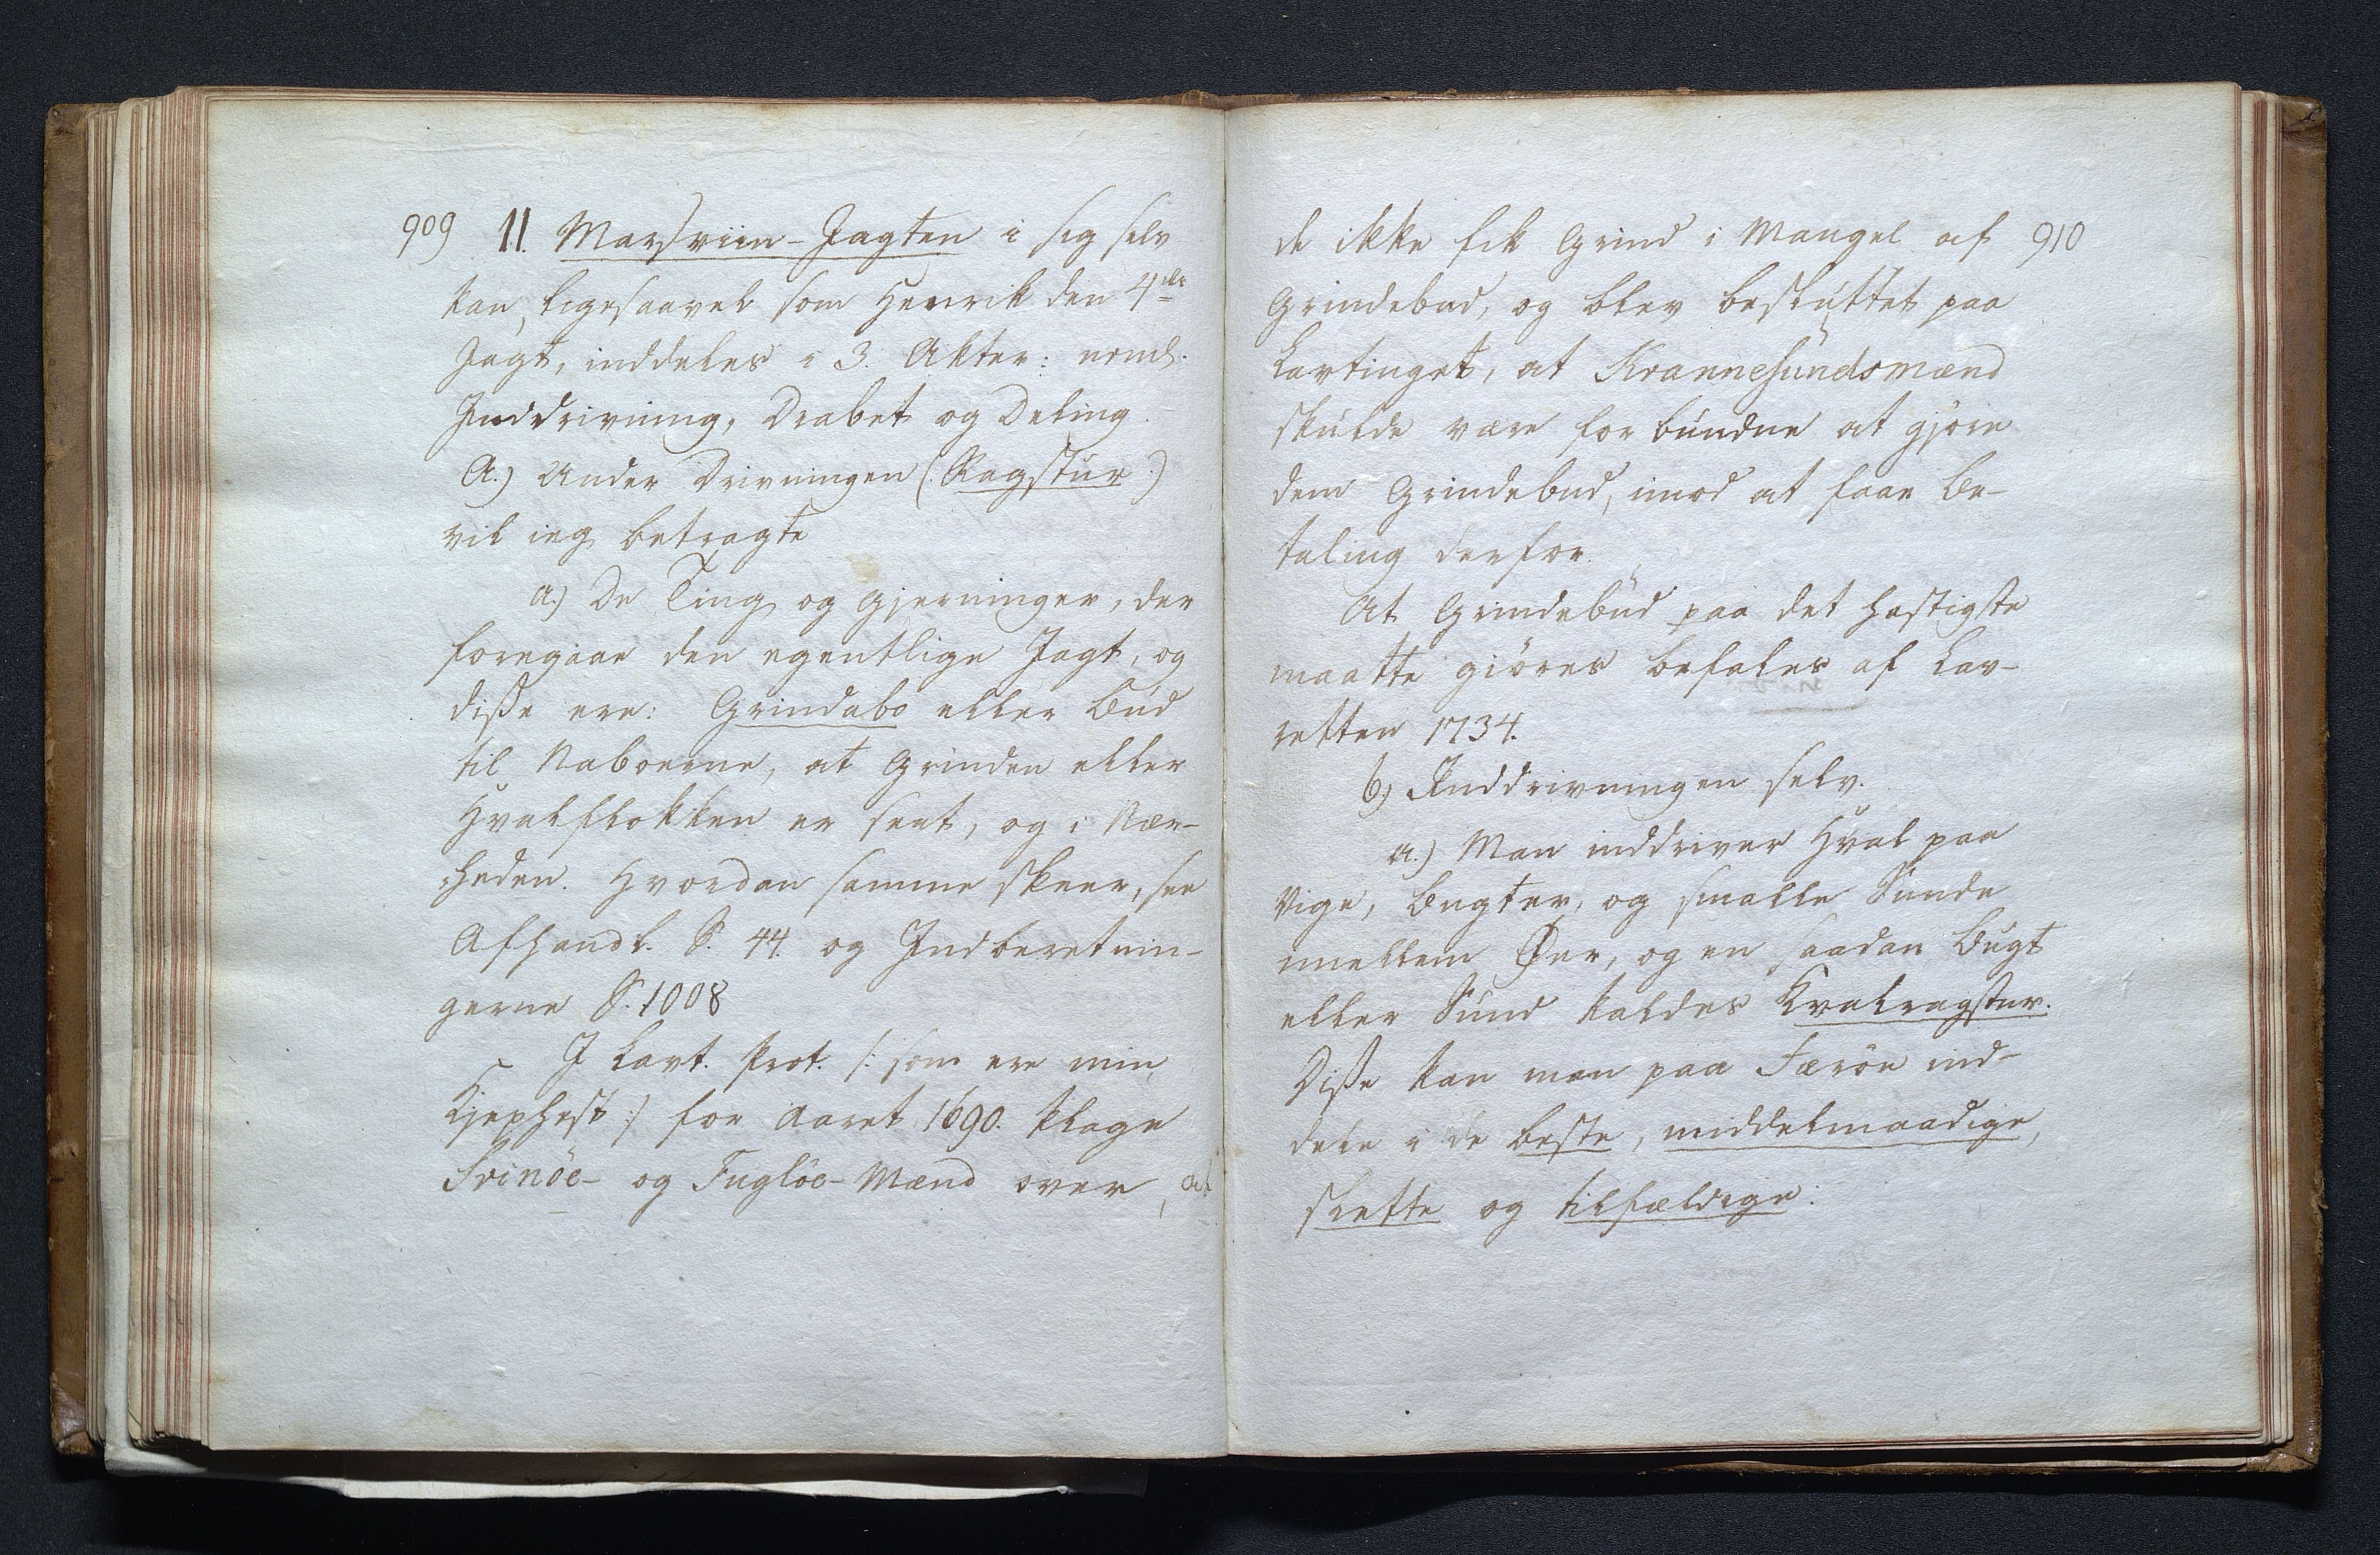 909 11. Marsviin-Jagten i sig selv
kan, ligesaavel som Henrik den 4de
Jagt, inddeles i 3. Akter: neml.
Inddrivning, Drabet og Deling.
A.) Under Drivningen (: Ragstur :)
vil ieg betragte
a.) De Ting og Gjerninger, der
foregaae den egentlige Jagt, og
disse ere: Grindabo eller Bud
til Naboerne, at Grinden eller
Hvalflokken er seet, og i Nær-
heden. Hvordan samme skeer, see
Afhandl. S. 44. og Indberetnin-
gerne S. 1008
I Lavt. Prot. /: som ere min
Kjephest :/ for Aaret 1690. klage
Svinöe- og Fuglöe-Mænd over, at
de ikke fik Grind i Mangel af 910
Grindebud, og blev besluttet paa
Lavtinget, at Krannesundsmænd
skulde være forbundne at gjøre
dem Grindebud, imod at faae Be-
taling derfor.
At Grindebud paa det hastigste
maatte giöres befales af Lav-
retten 1734.
b.) Inddrivningen selv.
a.) Man inddriver Hval paa
Vige, Bugter, og smalle Sunde
mellem Øer, og en saadan Bugt
eller Sund kaldes Kvalragstur.
Disse kan man paa Færöe ind-
dele i de beste, middelmaadige,
slette og tilfældige: